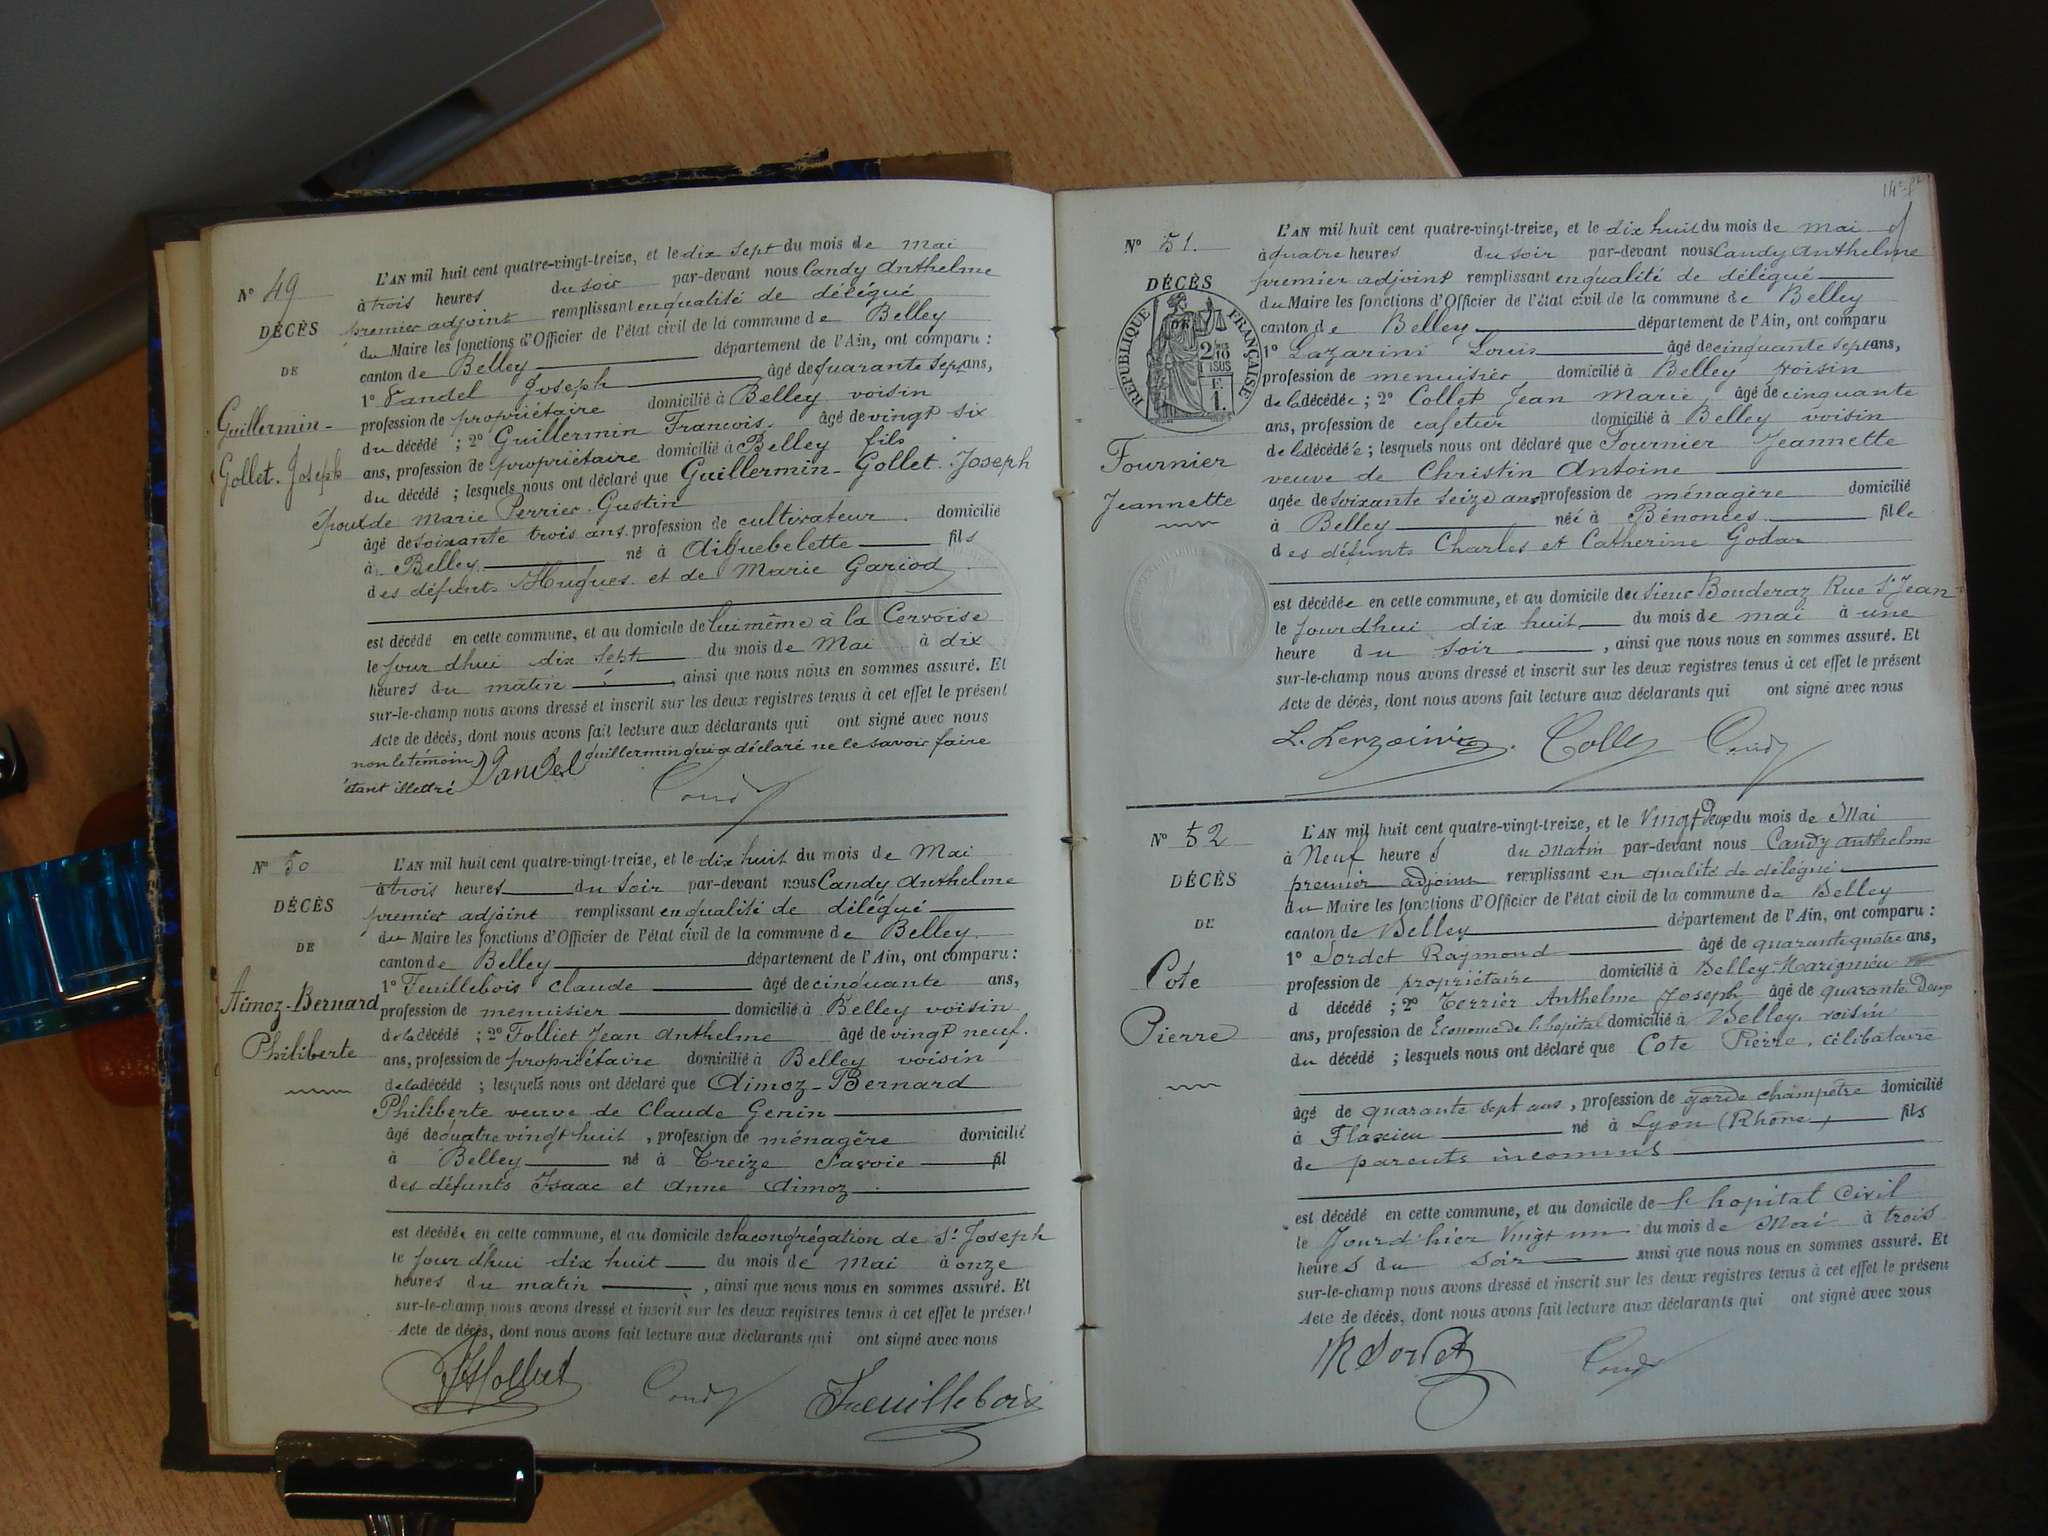 N° 49
DÉCÈS
DE
Guillermin-
Gollet. Joseph
L'AN mil huit cent quatre-vingt-treize, et le dix sept du mois de mai
à trois heures du soir par-devant nous Candy Anthelme
premier adjoint remplissant en qualité de délégué
du Maire les fonctions d'Officier de l'état civil de la commune de Belley
canton de Belley département de l'Ain, ont comparu :
1° Vandel Joseph âgé de quarante sept ans,
profession de propriétaire domicilié à Belley voisin
du décédé ; 2° Guillermin Francois. âgé de vingt six
ans, profession de propriétaire domicilié à Belley fils
du décédé ; lesquels nous ont déclaré que Guillermin-Gollet. Joseph
époux de Marie Perrier-Gustin
âgé de soixante trois ans profession de cultivateur domicilié
à Belley né à Aiguebelette fils
des défunts Hugues et de Marie Gariod
est décédé en cette commune, et au domicile de lui même à la Cervoise
le jour dhui dix sept du mois de Mai à dix
heures du matin , ainsi que nous nous en sommes assuré. Et
sur-le-champ nous avons dressé et inscrit sur les deux registres tenus à cet effet le présent
Acte de décès, dont nous avons fait lecture aux déclarants qui ont signé avec nous
non le témoin Guillermin qui a déclaré ne le savoir faire
étant illettré Vandel
Candy
N° 50
DÉCÈS
DE
Aimoz-Bernard
Philiberte
L'AN mil huit cent quatre-vingt-treize, et le dix huit du mois de Mai
à trois heures du soir par-devant nous Candy Anthelme
premier adjoint remplissant en qualité de délégué
du Maire les fonctions d'Officier de l'état civil de la commune de Belley
canton de Belley département de l'Ain, ont comparu :
1° Feuillebois Claude âgé de cinquante ans,
profession de menuisier domicilié à Belley voisin
de la décédé ; 2° Folliet Jean Anthelme âgé de vingt neuf.
ans, profession de propriétaire domicilié à Belley voisin
de la décédé ; lesquels nous ont déclaré que Aimoz-Bernard
Philiberte veuve de Claude Genin
âgé de quatre vingt huit , profession de ménagère domicilié
à Belley né à Treize Savoie fil
des défunts Isaac et Anne Aimoz
est décédée en cette commune, et au domicile de la congrégation de St Joseph
le jour dhui dix huit du mois de mai à onze
heures du matin , ainsi que nous nous en sommes assuré. Et
sur-le-champ nous avons dressé et inscrit sur les deux registres tenus à cet effet le présent
Acte de décès, dont nous avons fait lecture aux déclarants qui ont signé avec nous
Candy Feuillebois
N° 51.
DÉCÈS
DE
RÉPUBLIQUE FRANÇAISE
Fournier
Jeannette
L'AN mil huit cent quatre-vingt-treize, et le dix huit du mois de mai
à quatre heures du soir par-devant nous Candy Anthelme
premier adjoint remplissant en qualité de délégué
du Maire les fonctions d'Officier de l'état civil de la commune de Belley
canton de Belley département de l'Ain, ont comparu
1° Lazarini Louis âgé de cinquante sept ans,
profession de menuisier domicilié à Belley voisin
de la décédée ; 2° Collet Jean Marie, âgé de cinquante
ans, profession de cafetier domicilié à Belley voisin
de la décédée ; lesquels nous ont déclaré que Fournier Jeannette
veuve de Christin Antoine
agée de soixante seize ans profession de ménagère domicilié
à Belley née à Bénonces fille
des défunts Charles et Catherine Godar
est décédée en cette commune, et au domicile du sieur Bouderaz Rue St Jean
le jourdhui dix huit du mois de mai à une
heure du soir , ainsi que nous nous en sommes assuré. Et
sur-le-champ nous avons dressé et inscrit sur les deux registres tenus à cet effet le présent
Acte de décès, dont nous avons fait lecture aux déclarants qui ont signé avec nous
Collet Candy
N° 52
DÉCÈS
DE
Cote
Pierre
L'AN mil huit cent quatre-vingt-treize, et le Vingt Deux du mois de Mai
à Neuf heures du Matin par-devant nous Candy anthelme
premier adjoint remplissant en qualité de délégué
du Maire les fonctions d'Officier de l'état civil de la commune de Belley
canton de Belley département de l'Ain, ont comparu :
1° Sordet Raymond âgé de quarante quatre ans,
profession de propriétaire domicilié à Belley-Marignieu
d décédé ; 2° Terrier Anthelme Joseph âgé de quarante Deux
ans, profession de Econome de l'hopital domicilié à Belley. voisin
du décédé ; lesquels nous ont déclaré que Cote Pierre, célibataire
âgé de quarante sept ans, profession de garde champêtre domicilié
à Flaxieu né à Lyon (Rhône) fils
de parents inconnus
est décédé en cette commune, et au domicile de l'hopital Civil
le Jour d'hier Vingt un du mois de Mai à trois
heures du soir ainsi que nous nous en sommes assuré. Et
sur-le-champ nous avons dressé et inscrit sur les deux registres tenus à cet effet le présent
Acte de décès, dont nous avons fait lecture aux déclarants qui ont signé avec nous
R Sordet Candy